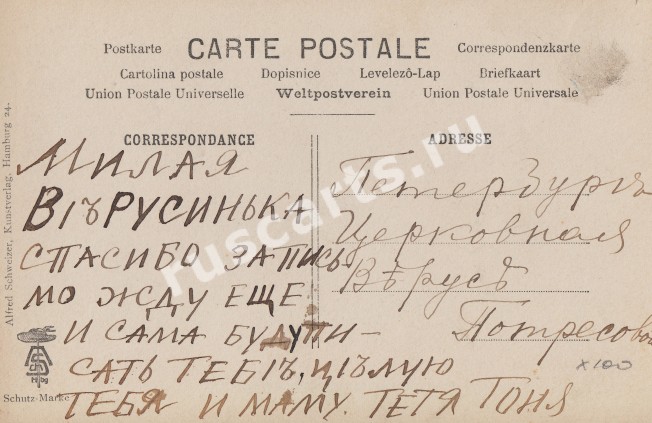 Postkarte CARTE POSTALE Correspondenzkarte
Cartolina postale Dopisnice Levelezô-Lap Briefkaart
Union Postale Universelle Weltpostverein Union Postale Universale
CORRESPONDANCE
МИЛАЯ
ВІЪРУСИНЬКА
СПАСИБО ЗА ПИСЬ-
МО ЖДУ ЕЩЕ
И САМА БУДУ ПИ-
САТЬ ТЕБІЪ, ЦІЪЛУЮ
ТЕБЯ И МАМУ. ТЕТЯ ТОНЯ
ADRESSE
Петербургъ
Церковная
Вѣрусѣ
Потресовой
x100
Alfred Schweizer, Kunstverlag, Hamburg 24.
Schutz-Marke
ruscarts.ru